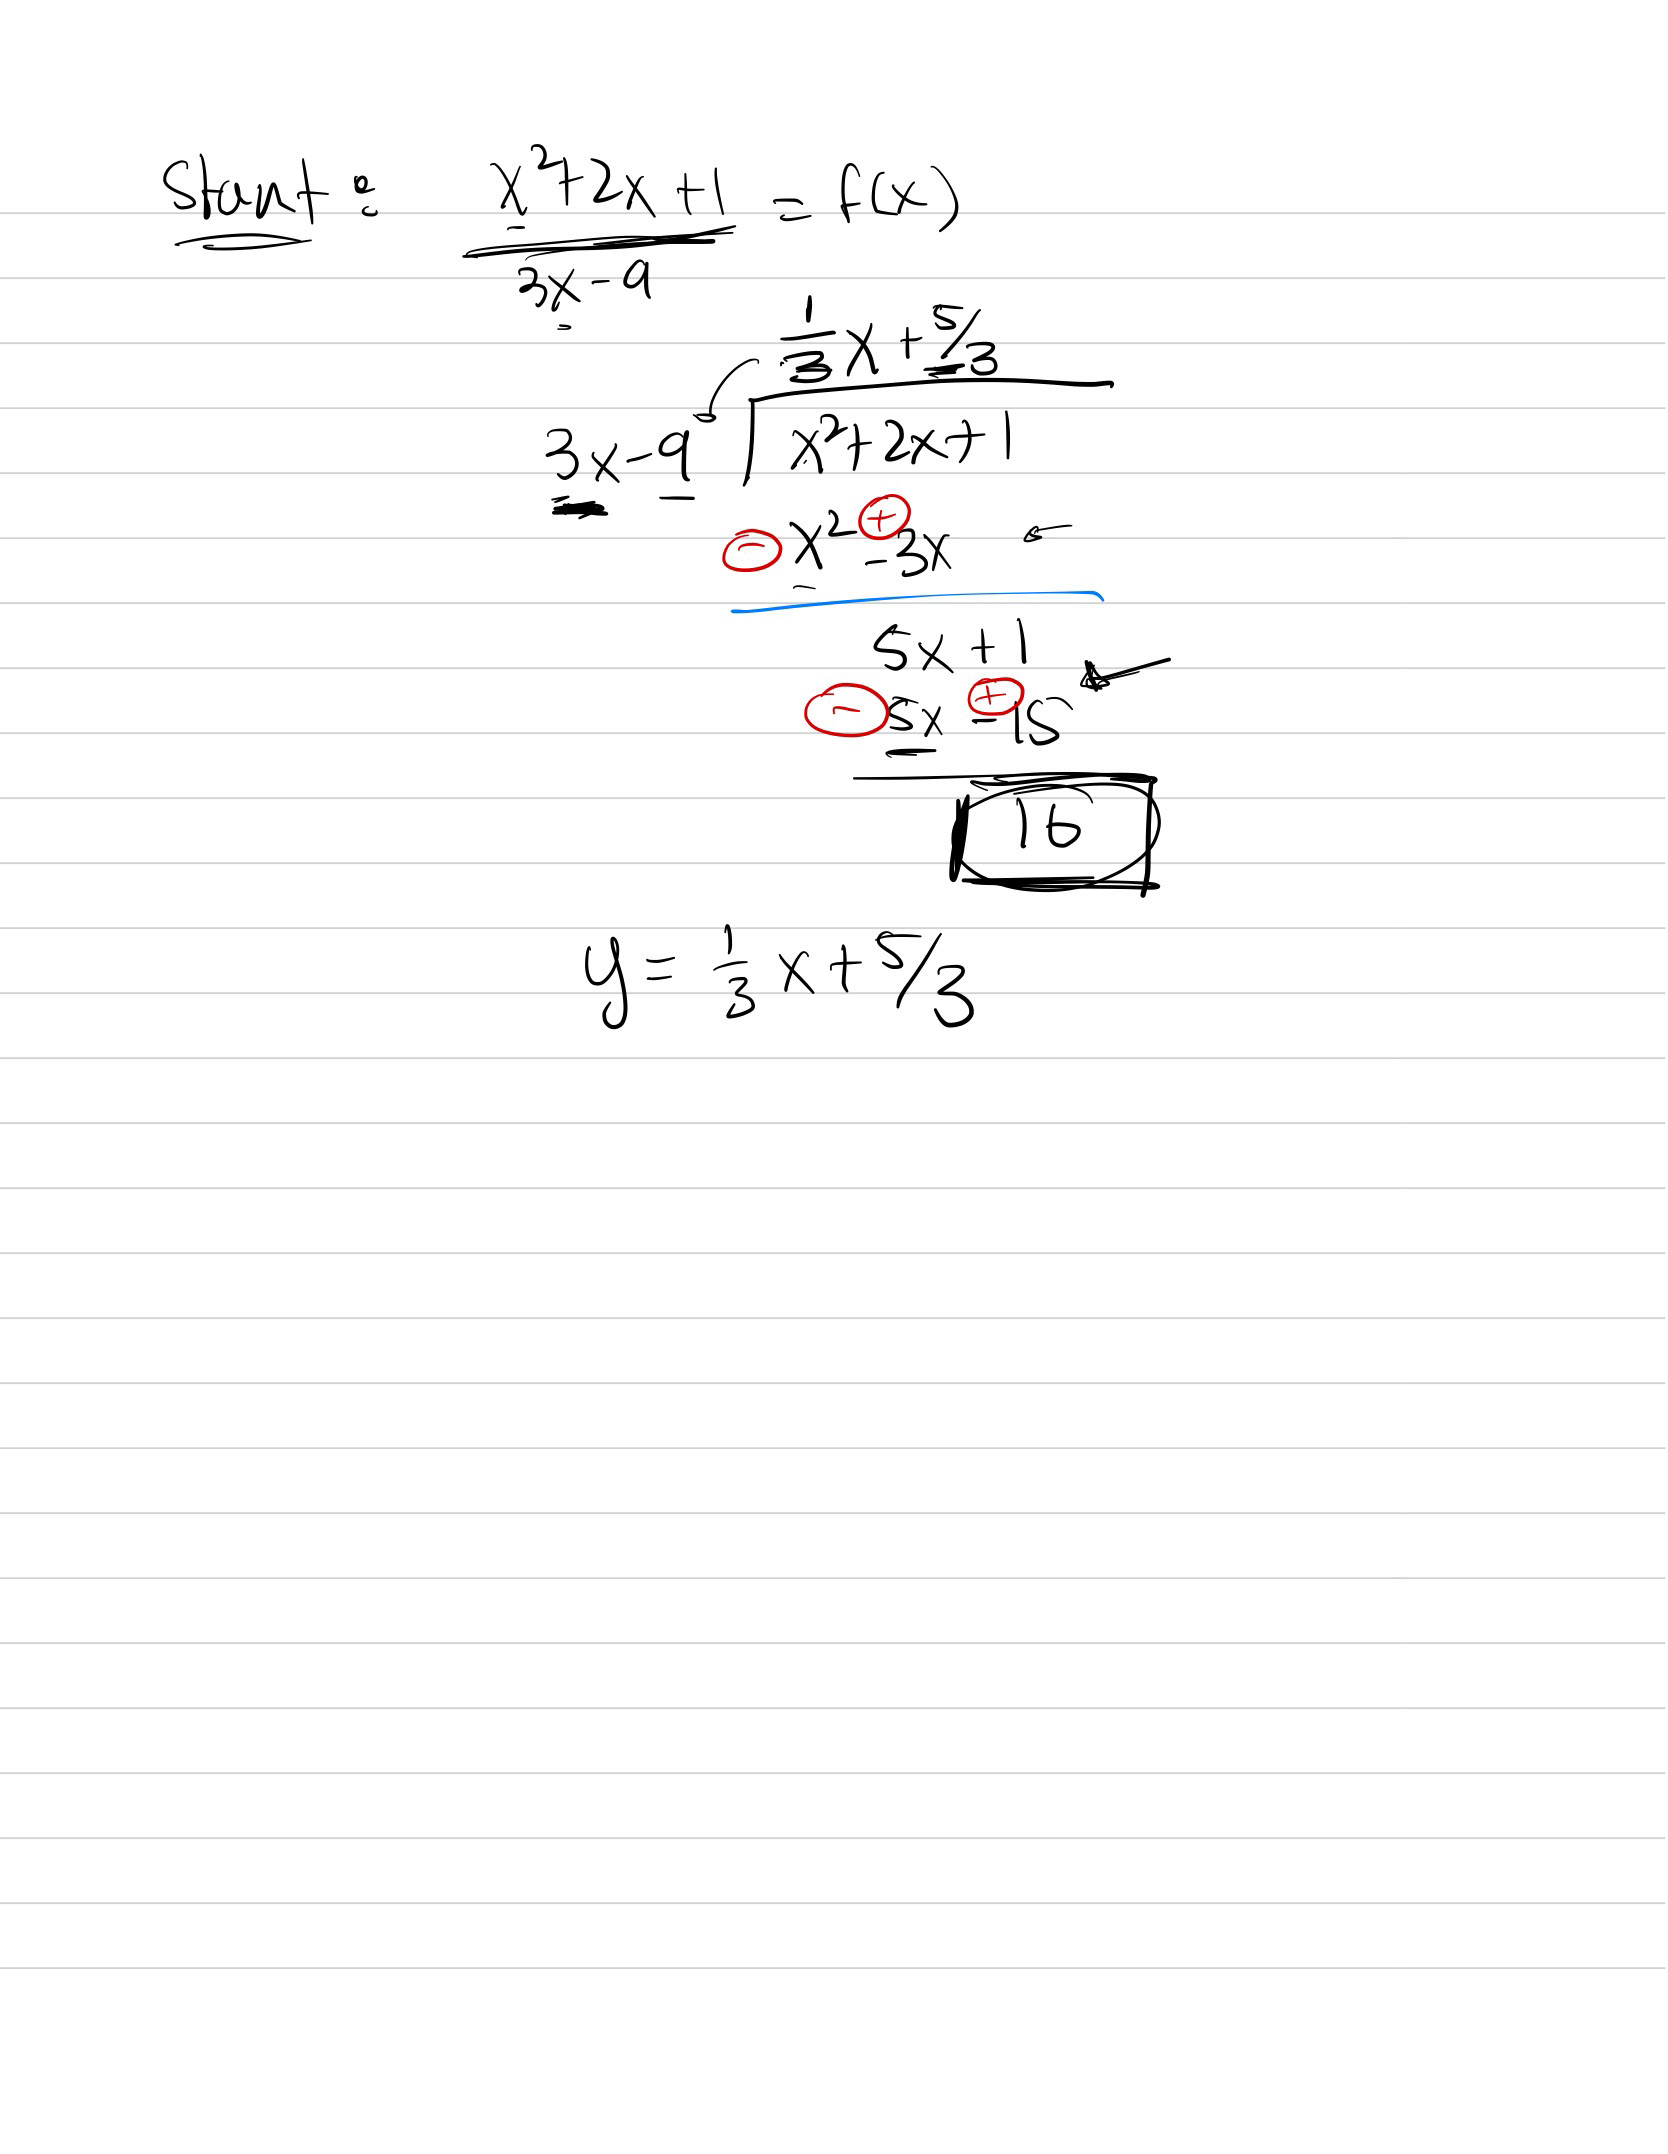 Start: x²+2x+1 = f(x)
3x-9
1/3 x + 5/3
3x-9 x²+2x+1
- x² + -3x
5x+1
- 5x + -15
16
y = 1/3 x + 5/3